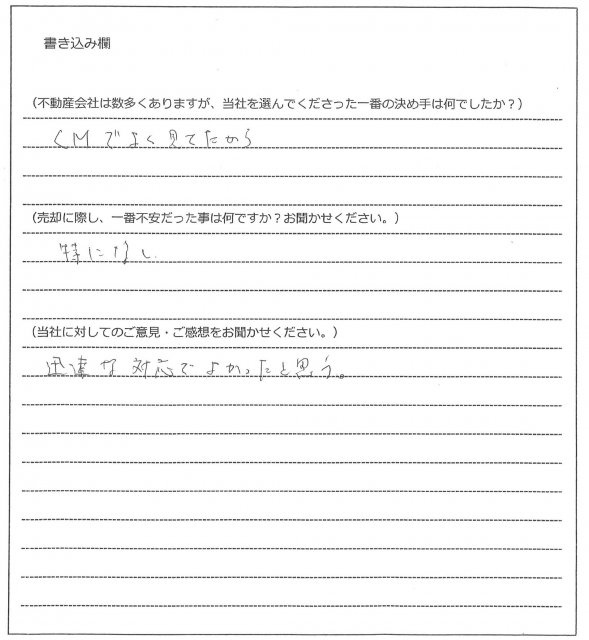 書き込み欄
(不動産会社は数多くありますが、当社を選んでくださった一番の決め手は何でしたか?)
CMでよく見てたから
(売却に際し、一番不安だった事は何ですか?お聞かせください。)
特になし
(当社に対してのご意見・ご感想をお聞かせください。)
迅速な対応でよかったと思う。